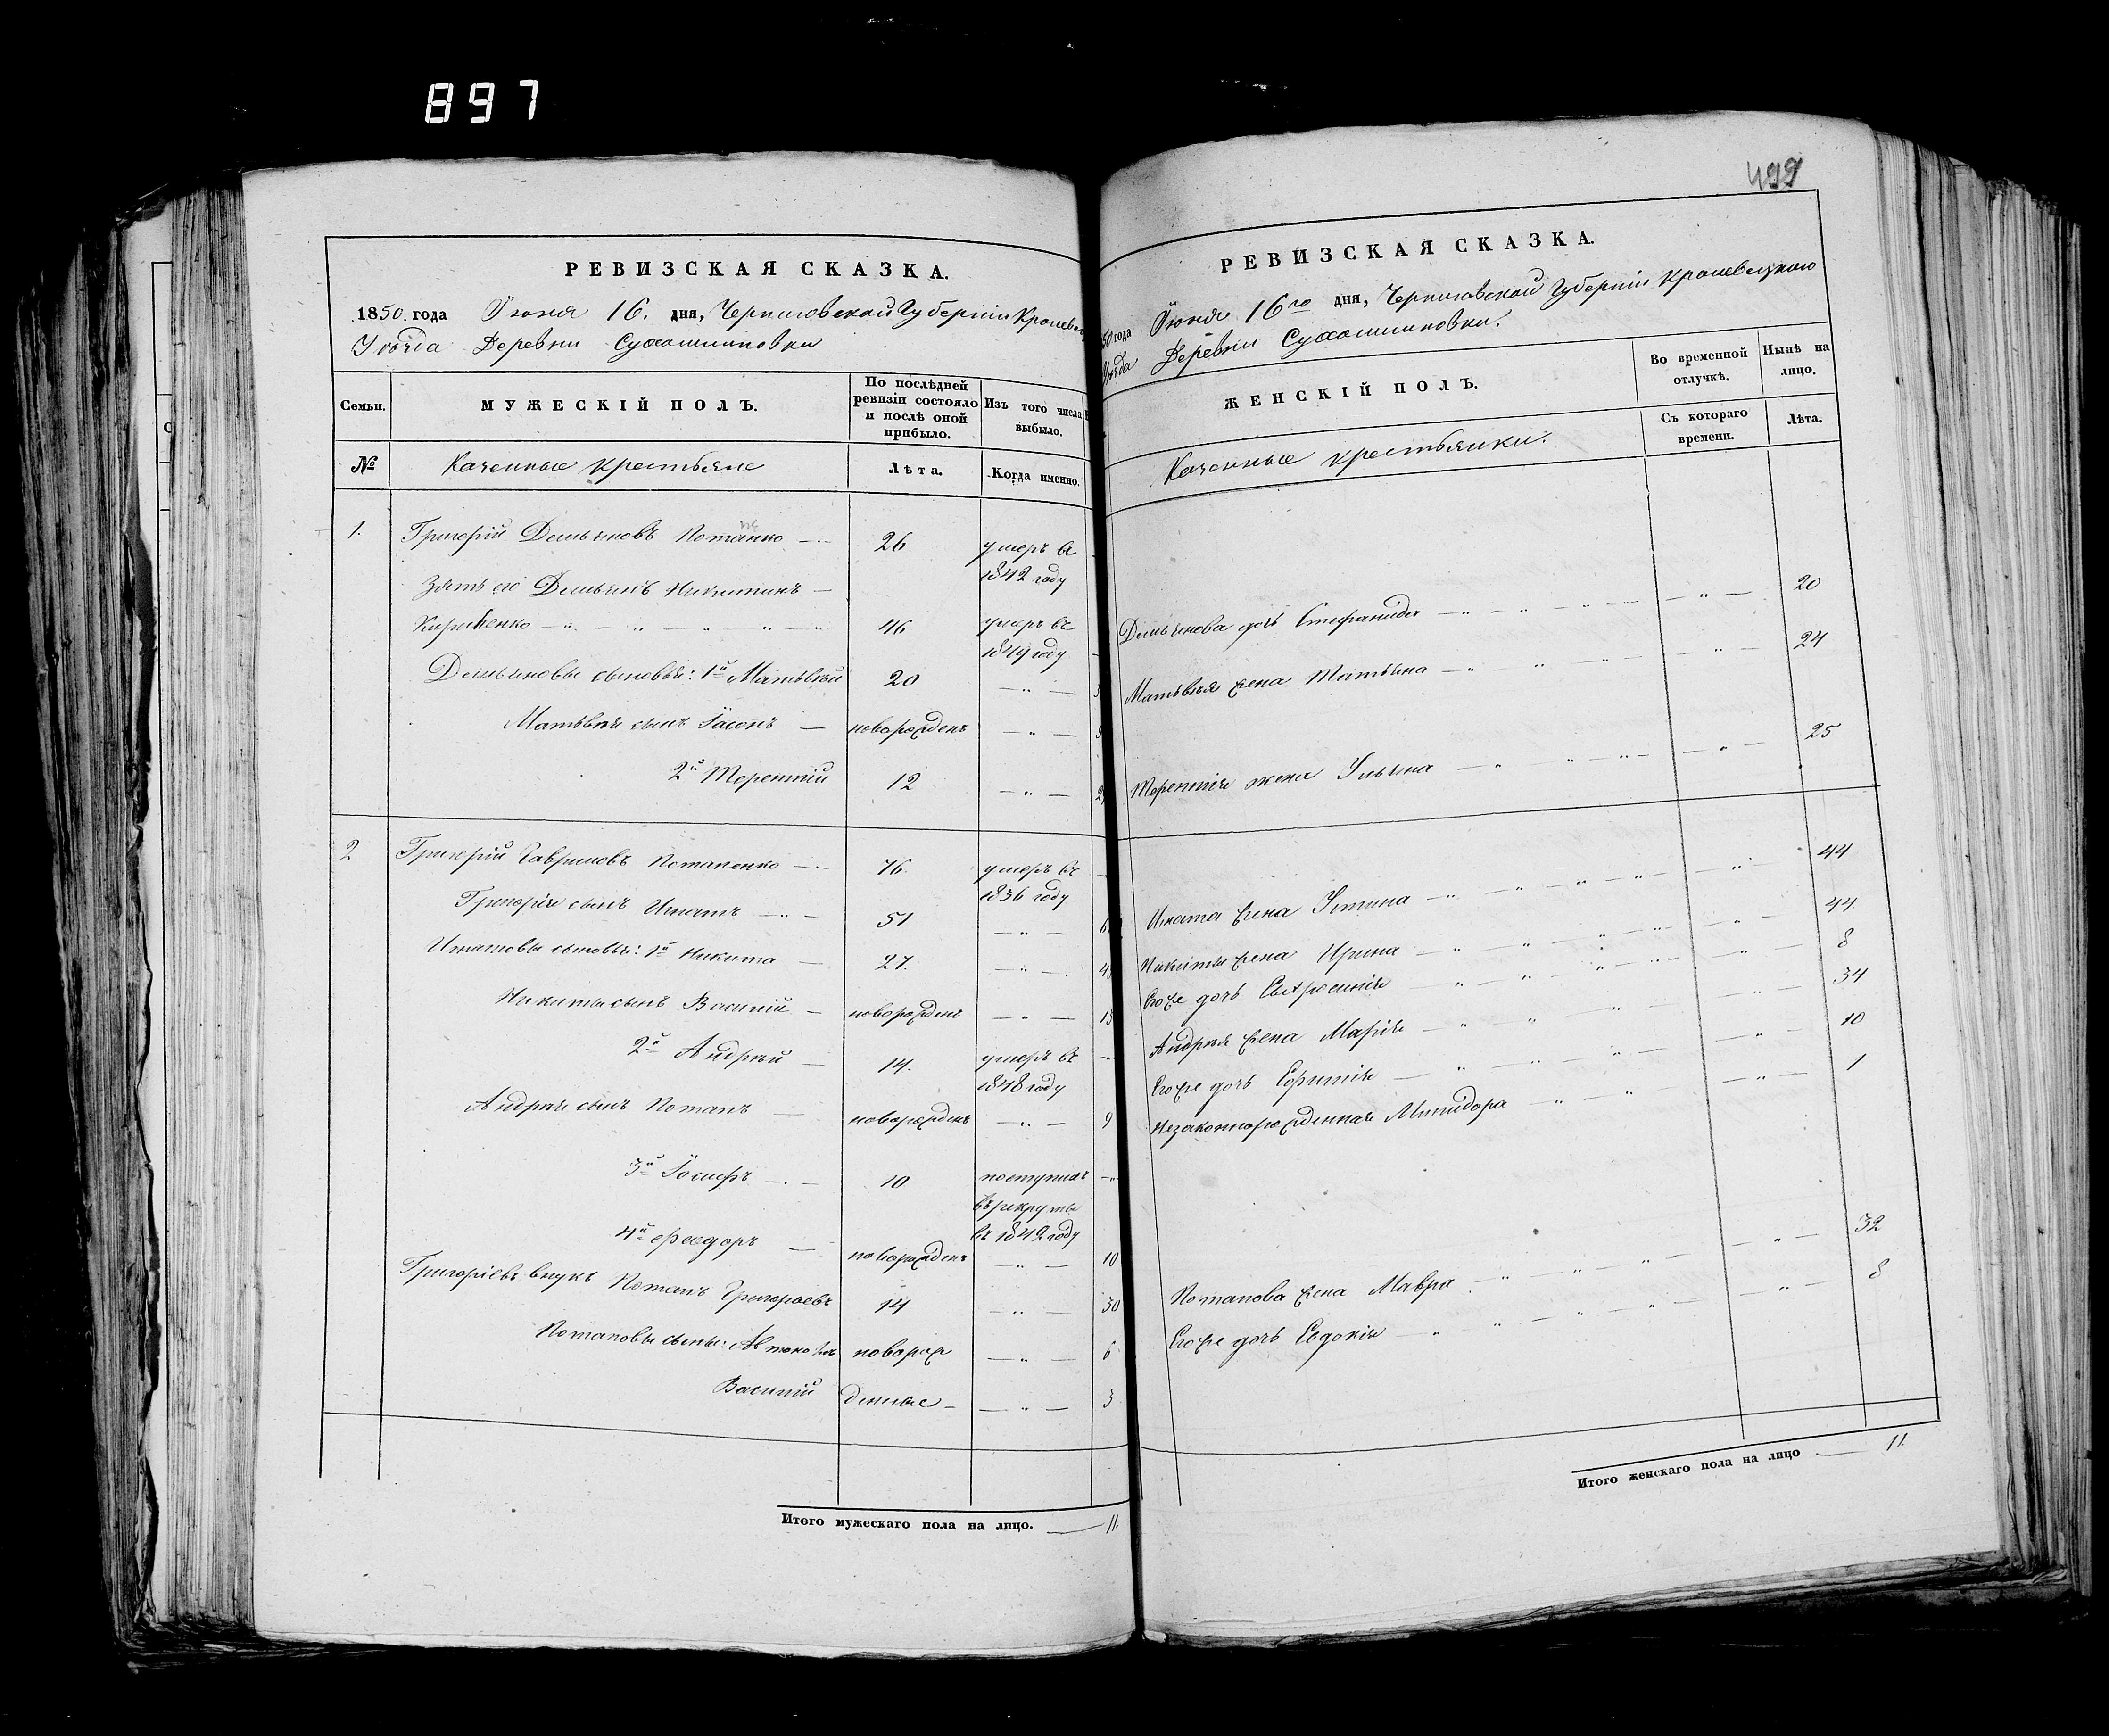 897
РЕВИЗСКАЯ СКАЗКА.
1850 года Іюня 16. дня, Черниговской Губерніи Кролевец
Уѣзда Деревни Сухомлиновки
Семьи.
МУЖЕСКІЙ ПОЛЪ.
По послѣдней ревизіи состояло и послѣ оной прибыло.
Изъ того числа выбыло.
№
Казенные крестьяне
Лѣта.
Когда именно.
1. Григорій Демьяновъ Потапко 26 умеръ въ
1842 году
Зять его Демьянъ Никитинъ
Кириенко 46 умеръ въ
1849 году
Демьяновы сыновья: 1й Матьвѣй 20
Матьвѣя сынъ Іасонъ новорожденъ
2й Терентій 12
2 Григорій Гавриловъ Потапенко 76. умеръ въ
1836 году
Григорія сынъ Игнатъ 51
Игнатовы сыновья: 1й Никита 27.
Никиты сынъ Василій новорожденъ 13
2й Андрѣй 14. умеръ въ
1848 году
Андрѣя сынъ Потапъ новорожденъ 9
3й Іосифъ 10 поступилъ
въ рекруты
въ 1842 году
4й Феодоръ новорожденъ 10
Григоріевъ внукъ Потапъ Григорьевъ 14 30
Потаповы сыны: новорож 6
Василій денные 3
Итого мужескаго пола на лицо. 11.
499
РЕВИЗСКАЯ СКАЗКА.
50 года Іюня 16го дня, Черниговской Губерніи Кролевецкаго
Уѣзда Деревни Сухомлиновки.
ЖЕНСКІЙ ПОЛЪ.
Во временной отлучкѣ.
Нынѣ на лицо.
Казенные крестьянки.
Съ котораго времени.
Лѣта.
Демьянова дочь Стефанида 20
Матьвѣя жена Татьяна 24
Терентія жена Ульяна 25
Игната жена Устина 44
Никиты жена Ирина 44
Егоже дочь Евфросинія 8
Андрѣя жена Марія 34
Егоже дочь 10
Незаконнорожденная Минидора 1
Потапова жена Мавра 32
Егоже дочь Евдокія 8
Итого женскаго пола на лицо 11.